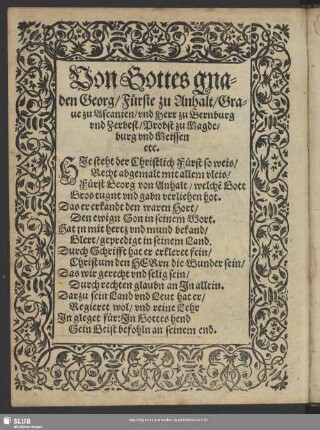 Von Gottes gna-
den Georg/ Fürste zu Anhalt/ Gra-
ue zu Ascanien/ vnd Herr zu Bernburg
vnd Zerbest/ Probst zu Magde-
burg vnd Meissen
etc.
HIe steht der Christlich Fürst so weis/
Recht abgemalt mit allem vleis/
Fürst Georg von Anhalt/ welchē Gott
Gros tugnt vnd gabn verliehen hot.
Das er erkandt den waren Hort/
Den ewign Son in seinem Wort.
Hat jn mit hertz vnd mund bekand/
Glert/ gepredigt in seinem Land/
Durch Schrifft hat er erkleret fein/
Christum den HERrn die Wunder sein/
Das wir gerecht vnd selig sein/
Durch rechten glaubn an Jn allein.
Darzu sein Land vnd Leut hat er/
Regieret wol/ vnd reine Lehr
Jn gleget für: Jn Gottes hend
Sein Geist befohln an seinem end.
SLUB